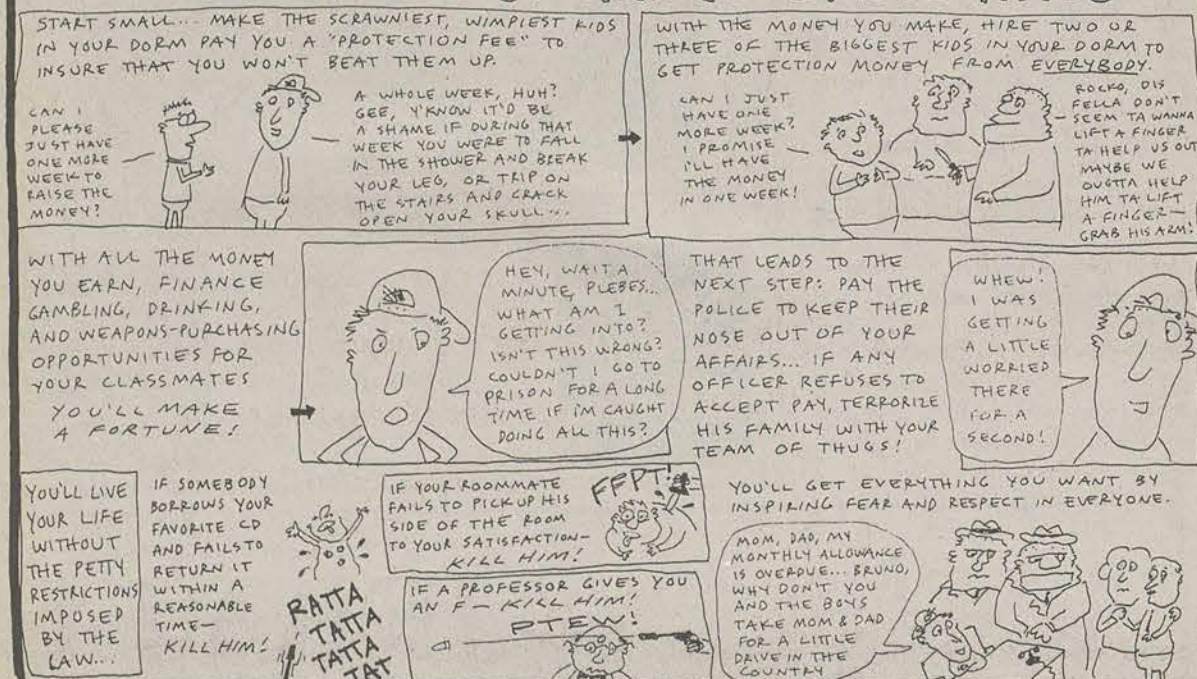 START SMALL... MAKE THE SCRAWNIEST, WIMPIEST KIDS
IN YOUR DORM PAY YOU A "PROTECTION FEE" TO
INSURE THAT YOU WON'T BEAT THEM UP.
CAN I
PLEASE
JUST HAVE
ONE MORE
WEEK TO
RAISE THE
MONEY?
A WHOLE WEEK, HUH?
GEE, Y'KNOW IT'D BE
A SHAME IF DURING THAT
WEEK YOU WERE TO FALL
IN THE SHOWER AND BREAK
YOUR LEG, OR TRIP ON
THE STAIRS AND CRACK
OPEN YOUR SKULL...
WITH THE MONEY YOU MAKE, HIRE TWO OR
THREE OF THE BIGGEST KIDS IN YOUR DORM TO
GET PROTECTION MONEY FROM EVERYBODY.
CAN I JUST
HAVE ONE
MORE WEEK?
I PROMISE
I'LL HAVE
THE MONEY
IN ONE WEEK!
ROCKO, DIS
FELLA DON'T
SEEM TA WANNA
LIFT A FINGER
TA HELP US OUT
MAYBE WE
OUGTTA HELP
HIM TA LIFT
A FINGER—
GRAB HIS ARM!
WITH ALL THE MONEY
YOU EARN, FINANCE
GAMBLING, DRINKING,
AND WEAPONS-PURCHASING
OPPORTUNITIES FOR
YOUR CLASSMATES
YOU'LL MAKE
A FORTUNE!
HEY, WAIT A
MINUTE, PLEBES...
WHAT AM I
GETTING INTO?
ISN'T THIS WRONG?
COULDN'T I GO TO
PRISON FOR A LONG
TIME IF I'M CAUGHT
DOING ALL THIS?
THAT LEADS TO THE
NEXT STEP: PAY THE
POLICE TO KEEP THEIR
NOSE OUT OF YOUR
AFFAIRS... IF ANY
OFFICER REFUSES TO
ACCEPT PAY, TERRORIZE
HIS FAMILY WITH YOUR
TEAM OF THUGS!
WHEW!
I WAS
GETTING
A LITTLE
WORRIED
THERE
FOR A
SECOND!
YOU'LL LIVE
YOUR LIFE
WITHOUT
THE PETTY
RESTRICTIONS
IMPOSED
BY THE
LAW...
IF SOMEBODY
BORROWS YOUR
FAVORITE CD
AND FAILS TO
RETURN IT
WITHIN A
REASONABLE
TIME—
KILL HIM!
RATTA
TATTA
TATTA
TAT
IF YOUR ROOMMATE
FAILS TO PICK UP HIS
SIDE OF THE ROOM
TO YOUR SATISFACTION—
KILL HIM!
FFPT!
IF A PROFESSOR GIVES YOU
AN F— KILL HIM!
PTEW!
YOU'LL GET EVERYTHING YOU WANT BY
INSPIRING FEAR AND RESPECT IN EVERYONE.
MOM, DAD, MY
MONTHLY ALLOWANCE
IS OVERDUE... BRUNO,
WHY DON'T YOU
AND THE BOYS
TAKE MOM & DAD
FOR A LITTLE
DRIVE IN THE
COUNTRY